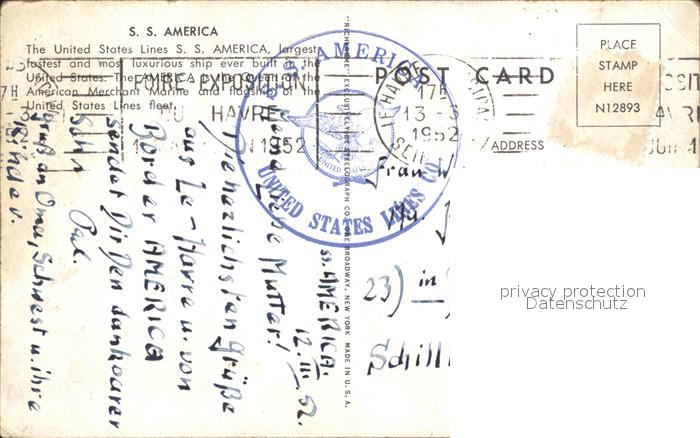 S. S. AMERICA
The United States Lines S. S. AMERICA, largest
fastest and most luxurious ship ever built in the
United States. The AMERICA is the queen of the
American Merchant Marine and flagship of the
United States Lines fleet.
FOIRE EXPOSITION
DU HAVRE
1952
S.S. AMERICA
UNITED STATES LINES CO.
LE HAVRE
17H
13 - 3
1952
POST CARD
PLACE
STAMP
HERE
N12893
ADDRESS
BROADWAY, NEW YORK. MADE IN U.S.A.
ss. AMERICA.
12. III. 52.
Liebe Mutter!
Die herzlichsten Grüße
aus Le-Havre u. von
Bord der AMERICA
sendet Dir Dein dankbarer
Sohn
Gruß an Oma, Schwest u. ihre
Kinder.
Frau W
23) in
Schill
privacy protection
Datenschutz